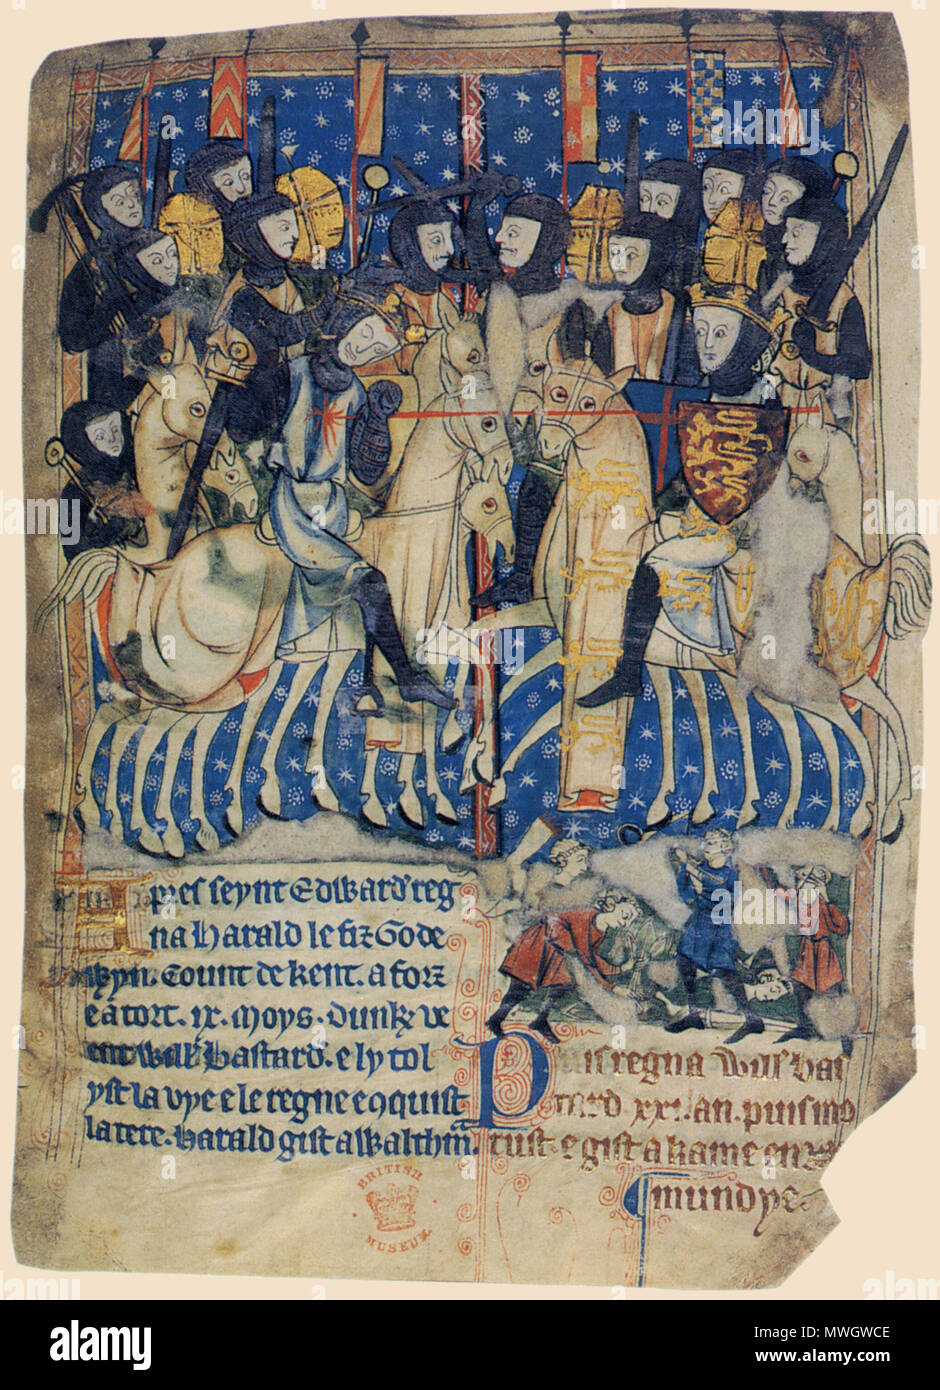 Apres seynt Edward' reg
na Harald le fiz Gode
wyn. Count de kent. a forz
e a tort. ix. moys. dunk ve
ent will' Bastard. e ly tol
yst la vye e le regne e 9quist
la tere. Harald gist a Walthm̄.
Puis regna Will's bas
tard xxi. an. puis mo
rust. e gist a kame en
mundye
BRITISH MUSEUM.
alamy
alamy
Image ID: MWGWCE
www.alamy.com